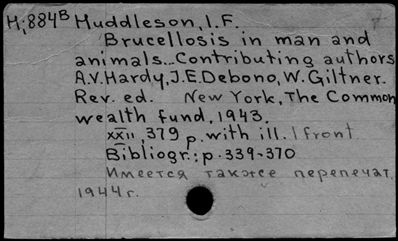 H;884В Huddleson, I.F.
Brucellosis in man and
animals... Contributing authors
A.V.Hardy, J.E.Debono, W.Giltner.
Rev. ed. New York, The Common
wealth fund, 1943.
XXII, 379 p. with ill. 1 front.
Bibliogr.: p. 339-370
Имеется также перепечат.
1944 г.